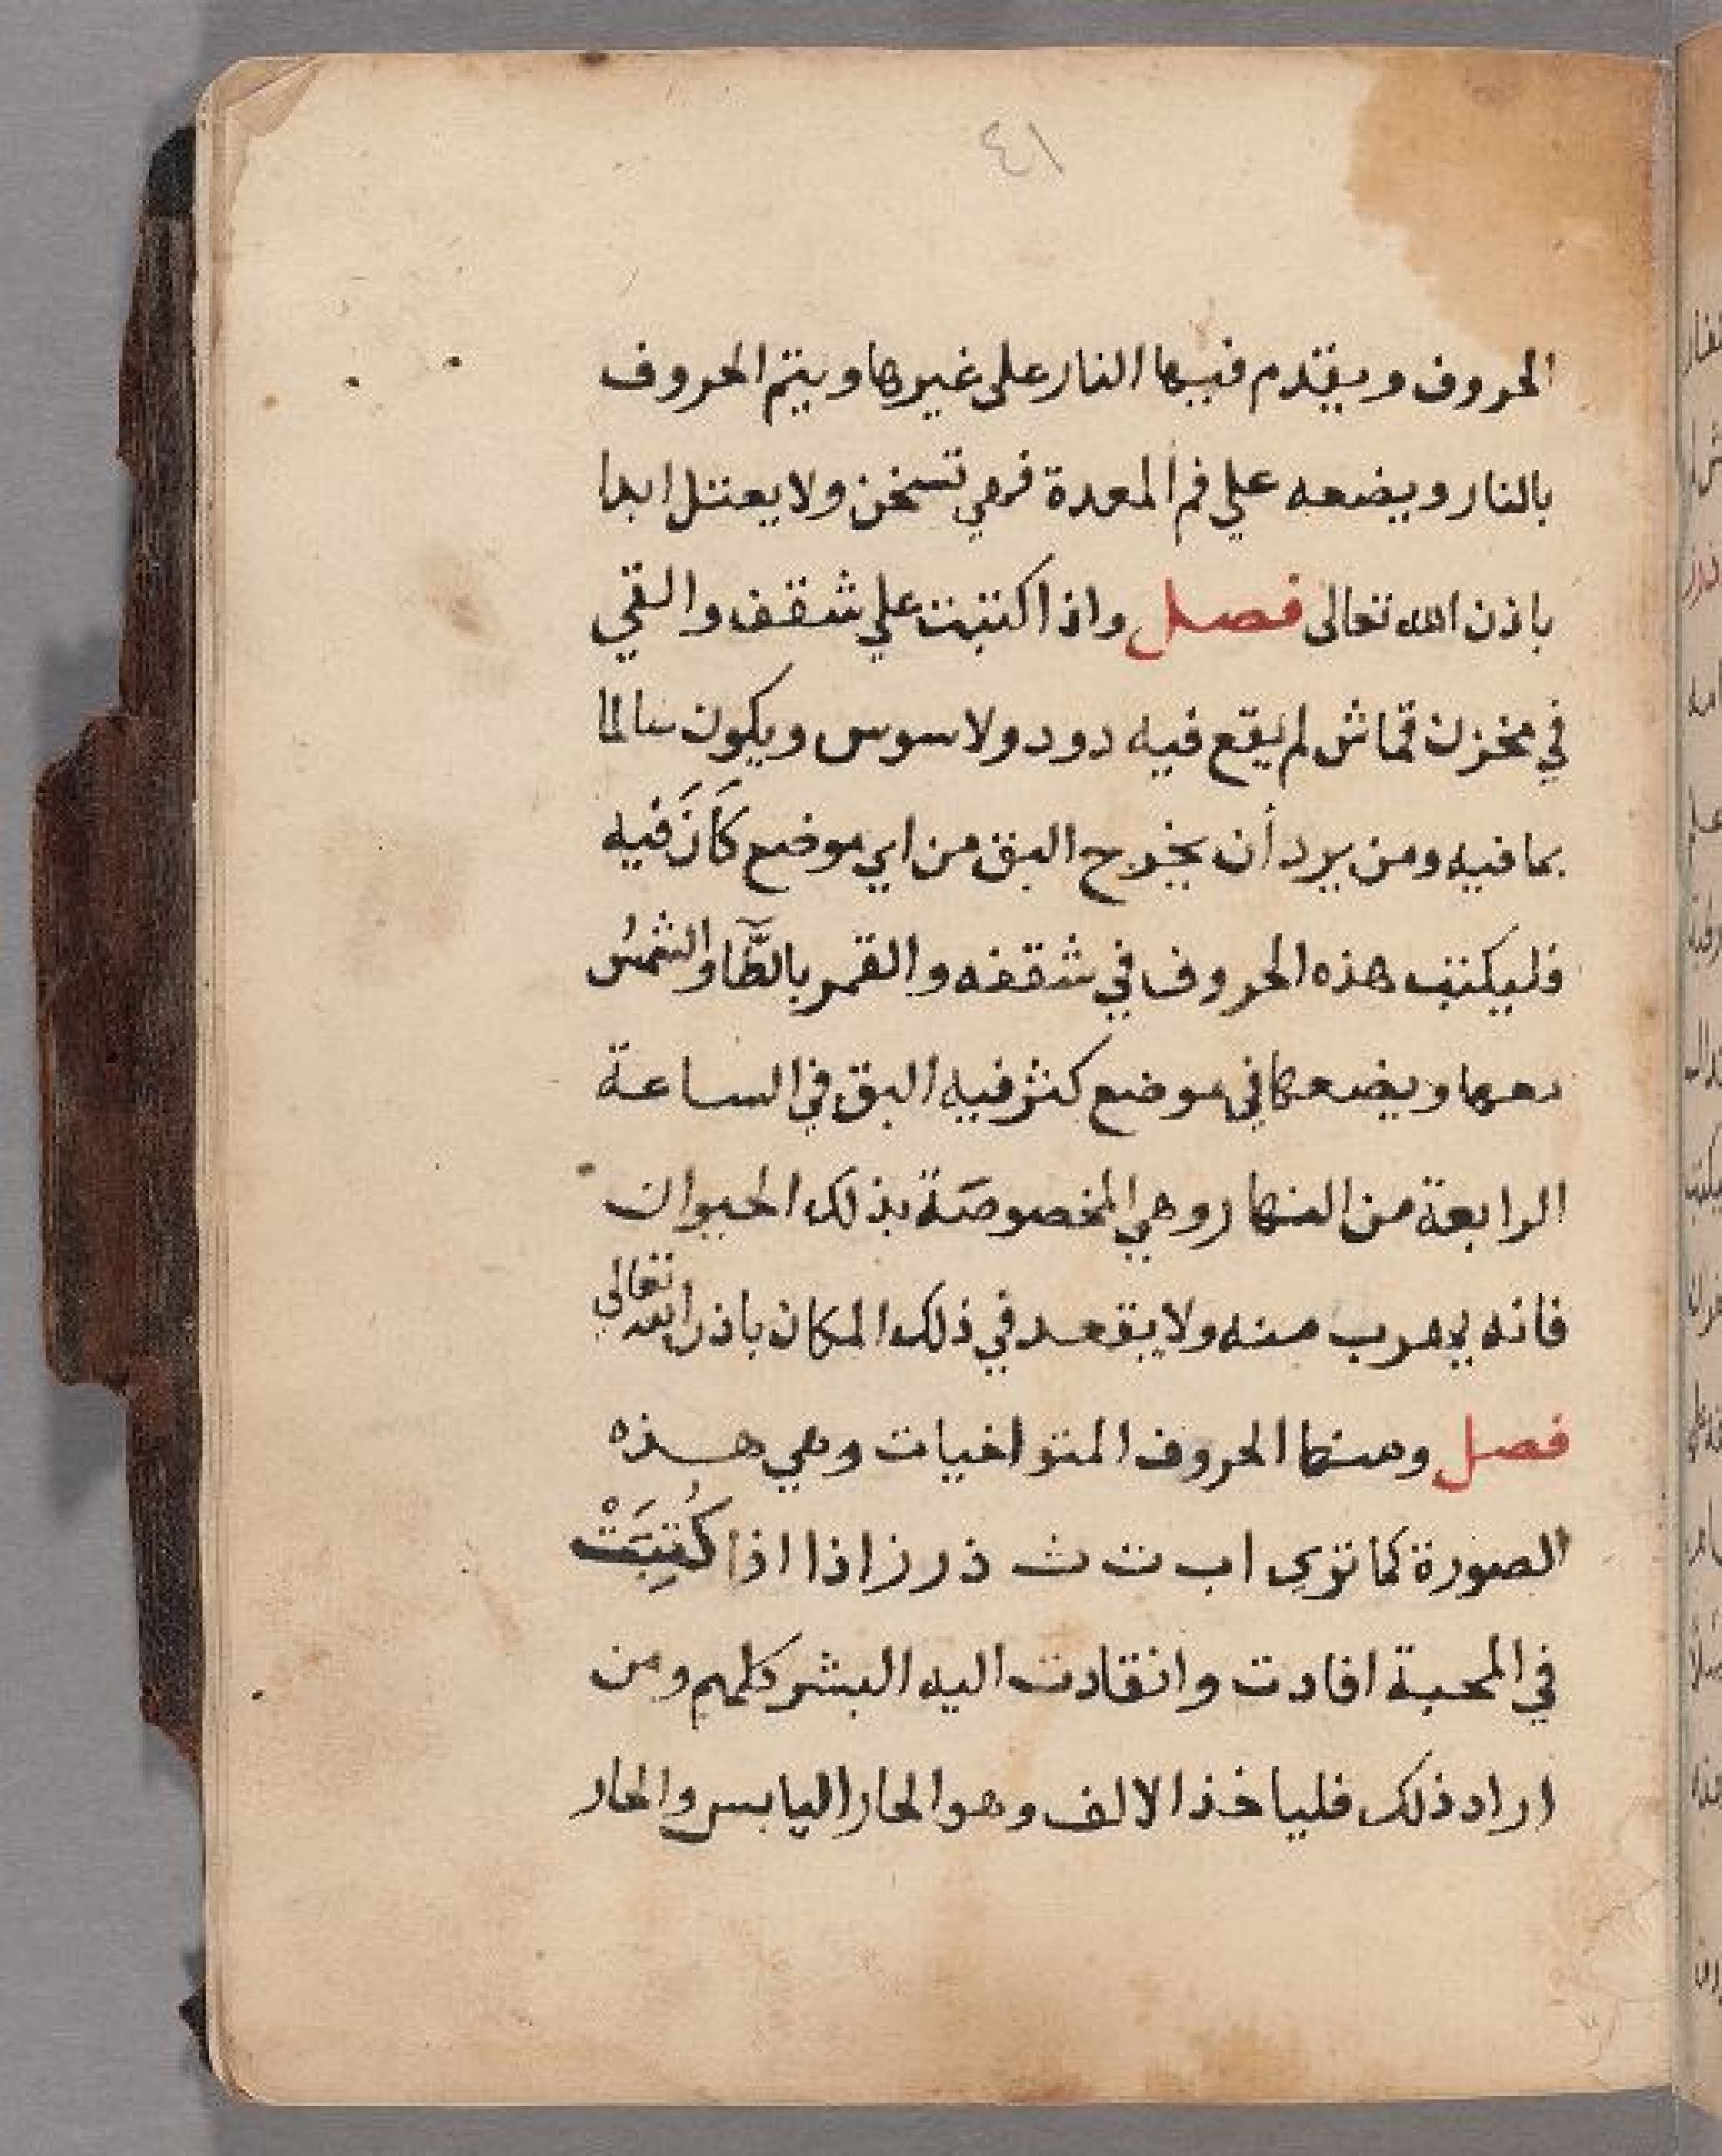 ٤١
الحروف ويقدم فيها النار على غيرها ويتم الحروف
بالنار ويضعه علي فم المعدة فهي تسخن ولا يعتل ابدا
باذن الله تعالى فصل واذا كتبت علي شقف والقي
في مخزن قماش لم يقع فيه دود ولا سوس ويكون سالما
بما فيه ومن يرد أن يخرج البق من اي موضع كَانَ فيه
فليكتب هذه الحروف في شقفه والقمر بالطَّا والشمسُ
معها ويضعها في موضع كثر فيه البق في الساعة
الرابعة من النهار وهي المخصوصَة بذلك الحيوان
فانه يهرب منه ولا يقعد في ذلك المكان باذن الله تعالي
فصل ومنها الحروف المتواخيات وهي هذه
الصورة كما ترى اب ت ث ذ ر ز اذا اذا كُتِبَتْ
في المحبة افادت وانقادت اليه البشر كلهم ومن
اراد ذلك فلياخذ الالف وهو الحار اليابس والحار